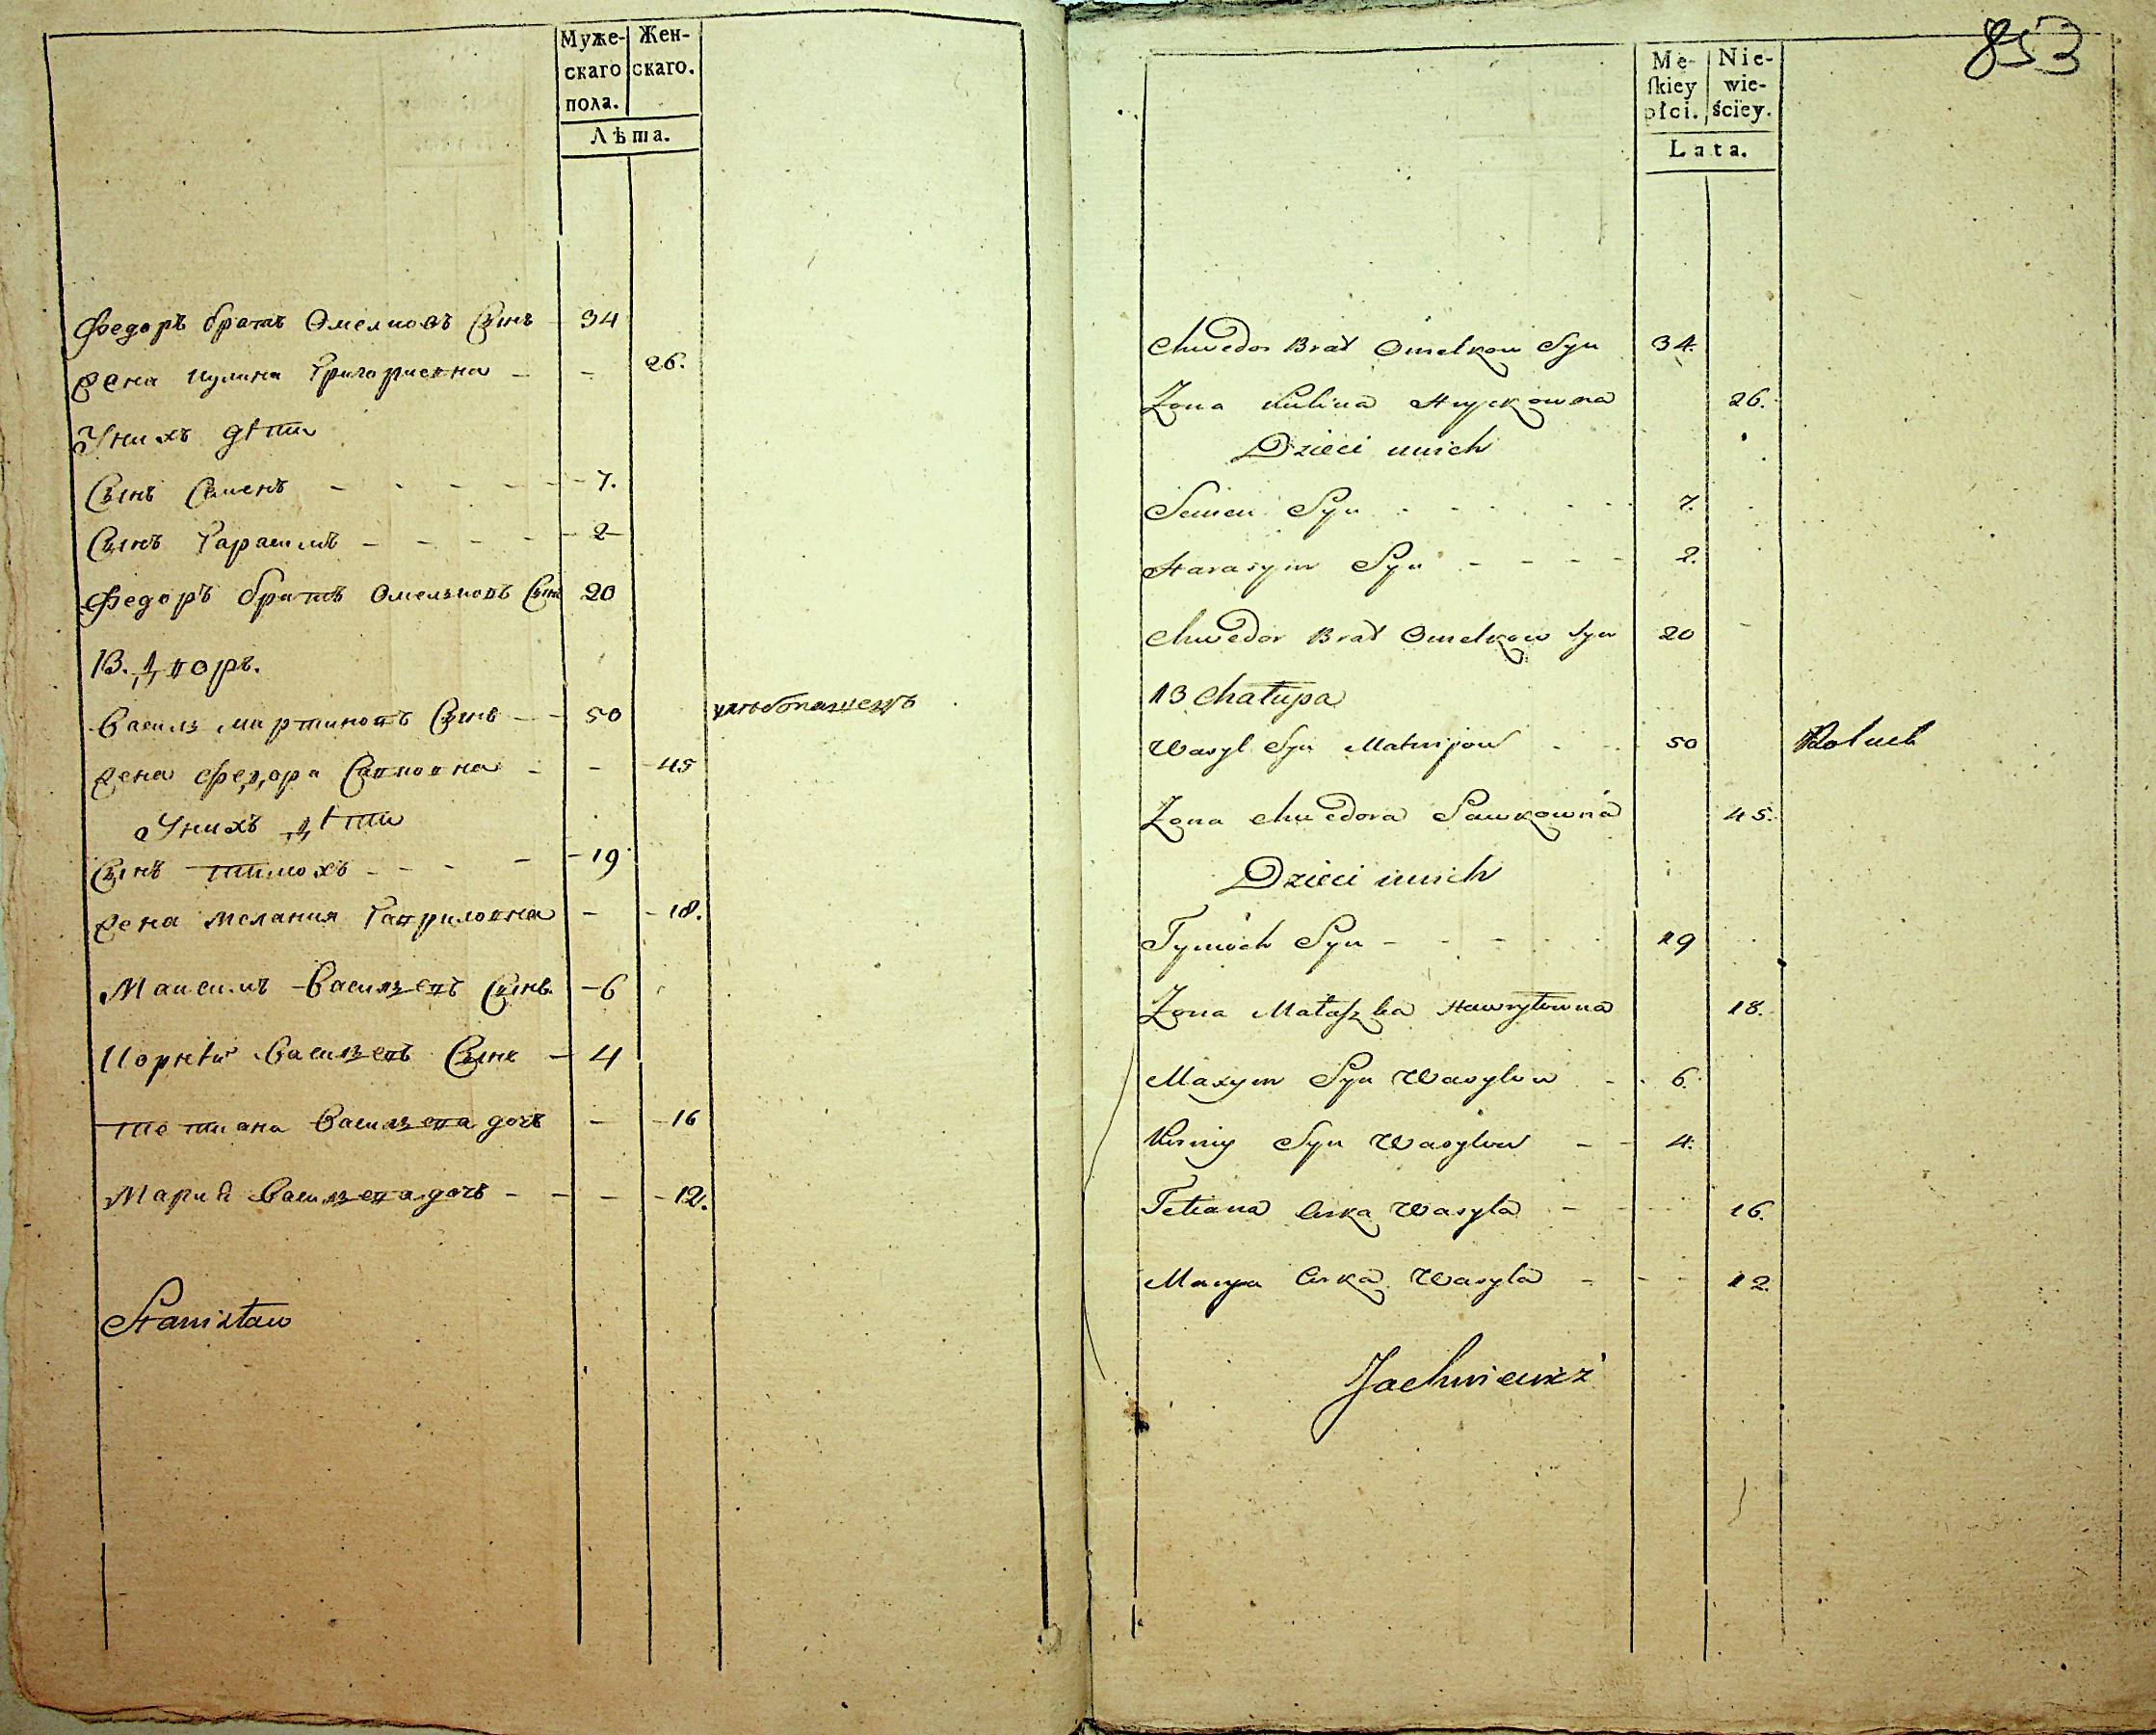 Муже- Жен-
скаго скаго.
пола.
Лѣта.
Федоръ братъ Омелковъ Сынъ - 34
Жена Кулина Григориевна - - 26.
Унихъ дѣти
Сынъ Семенъ - - - - - 7.
Сынъ Гарасимъ - - - - - 2
Федоръ братъ Омельковъ Сынъ 20
13. Дворъ.
Василь Мартиновъ Сынъ - - 50 хлѣбопашецъ
Жена Федора Савковна - - 45
Унихъ Дѣти
Сынъ Тимохъ - - - - 19
Жена Мелания Гавриловна - - 18.
Максимъ Васильевъ Сынъ. - 6
Корнѣй Васильевъ Сынъ - 4
Тетиана Васильева дочь - - 16
Мария Васильева дочь - - - - 12.
Stanisław
853
Mę- Nie-
skiey wie-
płci. ściey.
Lata.
Chwedor Brat Omelkow Syn 34.
Zona Kulina Hryckowna 26.
Dzieci unich
Semen Syn - - - - 7.
Harasym Syn - - - - 2.
Chwedor Brat Omelkow Syn 20
13 Chałupa
Wasyl Syn Matwijow - - 50 Rolnik
Zona Chwedora Sawkowna 45.
Dzieci unich
Tymoch Syn - - - - 19
Zona Małaszka Hawryłowna 18.
Maxym Syn Wasylow - - 6.
Korniy Syn Wasylow - - 4.
Tetiana Corka Wasyla - - 16.
Marya Corka Wasyla - - - 12.
Jachniewicz